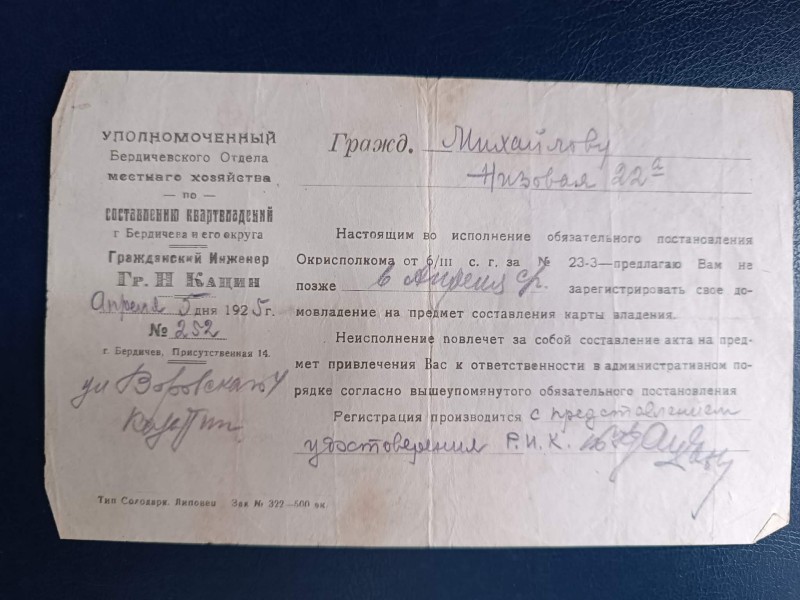 УПОЛНОМОЧЕННЫЙ
Бердичевского Отдела
местнаго хозяйства
— по —
составлению квартвладений
г Бердичева и его округа
Гражданский Инженер
Гр. Н Кацин
Апреля 5 дня 1925 г.
№ 252
г. Бердичев, Присутственная 14.
ул Воровского 4
Гражд. Михайлову
Низовая 22а
Настоящим во исполнение обязательного постановления
Окрисполкома от 6/III с. г. за № 23-3—предлагаю Вам не
позже в Апреля с/г. зарегистрировать свое до-
мовладение на предмет составления карты владения.
Неисполнение повлечет за собой составление акта на пред-
мет привлечения Вас к ответственности в административном по-
рядке согласно вышеупомянутого обязательного постановления
Регистрация производится с представлением
удостоверения Р. И. К.
Тип Солодарк. Липовец Зак № 322—500 эк.